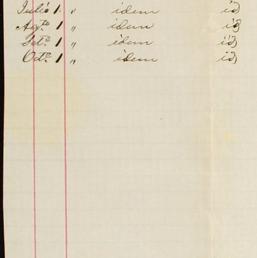 Julio 1 " idem id
Ag.to 1 " idem id
Set.e 1 " idem id
Oct.e 1 " idem id